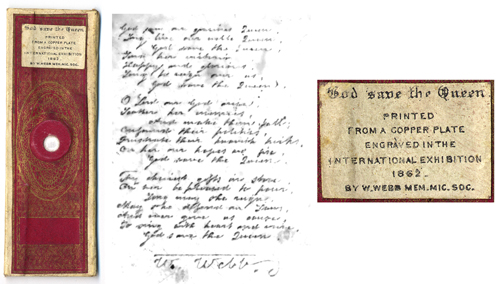 God save the Queen
PRINTED
FROM A COPPER PLATE
ENGRAVED IN THE
INTERNATIONAL EXHIBITION
1862.
BY W. WEBB MEM. MIC. SOC.
God save our gracious Queen,
Long live our noble Queen,
God save the Queen;
Send her victorious
Happy and glorious
Long to reign over us,
God save the Queen.
O Lord our God arise,
Scatter her enemies,
And make them fall;
Confound their politics,
Frustrate their knavish tricks,
On her our hopes we fix,
God save the Queen.
Thy choicest gifts in store
On her be pleased to pour,
Long may she reign.
May she defend our laws,
And ever give us cause,
To sing with heart and voice,
God save the Queen
W. Webb.
God save the Queen
PRINTED
FROM A COPPER PLATE
ENGRAVED IN THE
INTERNATIONAL EXHIBITION
1862.
BY W. WEBB MEM. MIC. SOC.